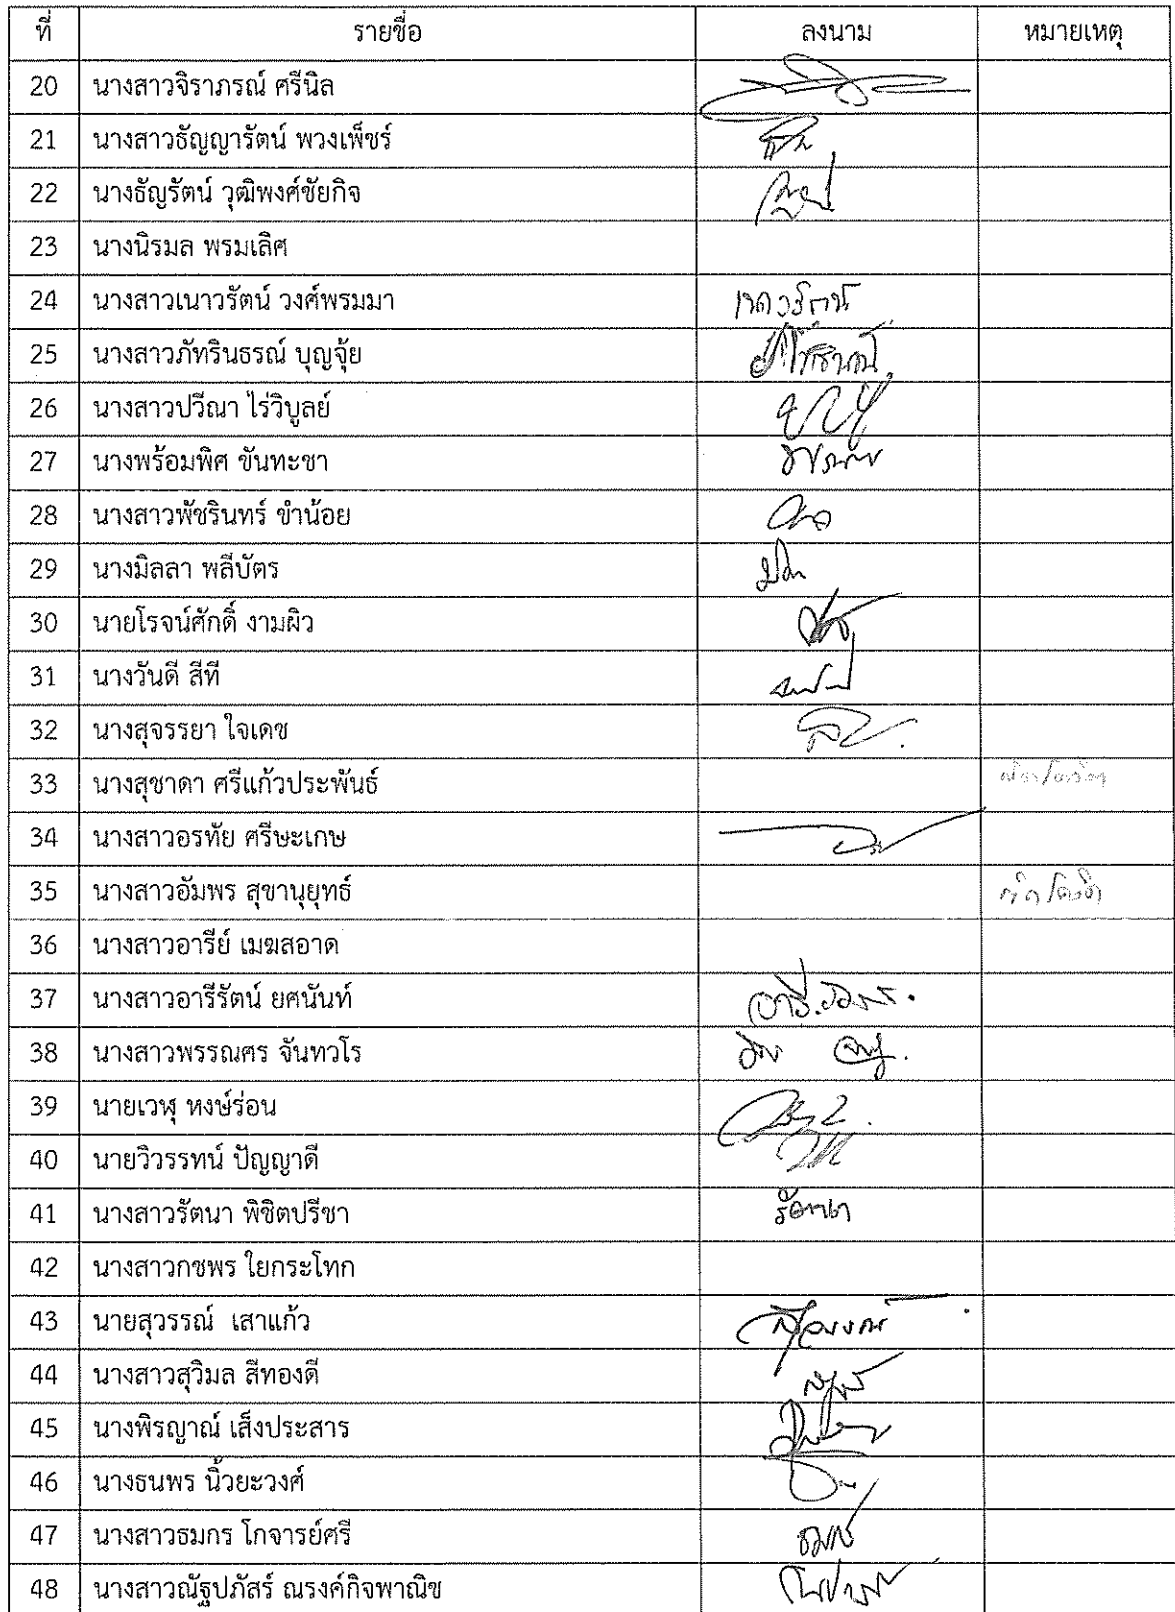 ที่ รายชื่อ ลงนาม หมายเหตุ
20 นางสาวจิราภรณ์ ศรีนิล
21 นางสาวธัญญารัตน์ พวงเพ็ชร์
22 นางธัญรัตน์ วุฒิพงศ์ชัยกิจ
23 นางนิรมล พรมเลิศ
24 นางสาวเนาวรัตน์ วงศ์พรมมา เนาวรัตน์
25 นางสาวภัทรินธรณ์ บุญจุ้ย
26 นางสาวปวีณา ไร่วิบูลย์
27 นางพร้อมพิศ ขันทะชา
28 นางสาวพัชรินทร์ ขำน้อย
29 นางมิลลา พลีบัตร
30 นายโรจน์ศักดิ์ งามผิว
31 นางวันดี สีที
32 นางสุจรรยา ใจเดช
33 นางสุชาดา ศรีแก้วประพันธ์
34 นางสาวอรทัย ศรีษะเกษ
35 นางสาวอัมพร สุขานุยุทธ์
36 นางสาวอารีย์ เมฆสอาด
37 นางสาวอารีรัตน์ ยศนันท์
38 นางสาวพรรณศร จันทวโร
39 นายเวฬุ หงษ์ร่อน
40 นายวิวรรทน์ ปัญญาดี
41 นางสาวรัตนา พิชิตปรีชา รัตนา
42 นางสาวกชพร ใยกระโทก
43 นายสุวรรณ์ เสาแก้ว
44 นางสาวสุวิมล สีทองดี
45 นางพิรญาณ์ เส็งประสาร
46 นางธนพร นิ้วยะวงศ์
47 นางสาวธมกร โกจารย์ศรี
48 นางสาวณัฐปภัสร์ ณรงค์กิจพาณิช